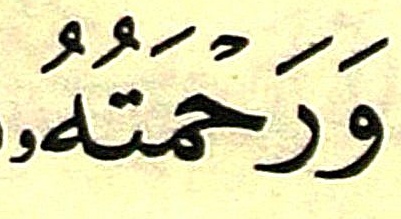 وَرَحْمَتُهُۥ